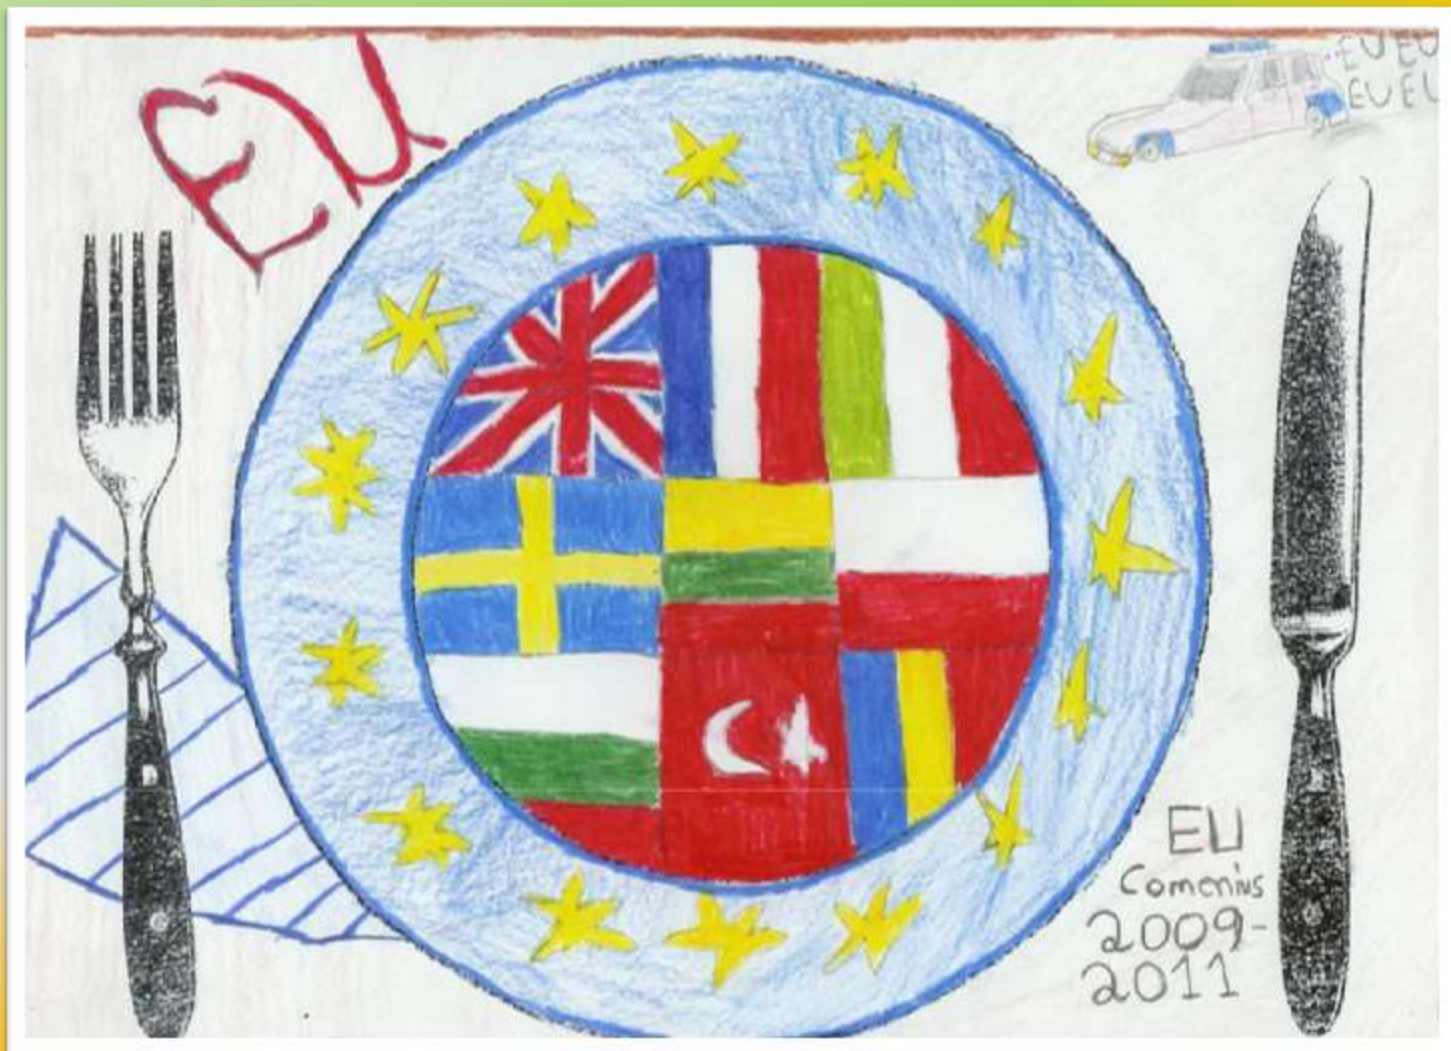 EU
EU EU
EU EU
EU
Comenius
2009-
2011